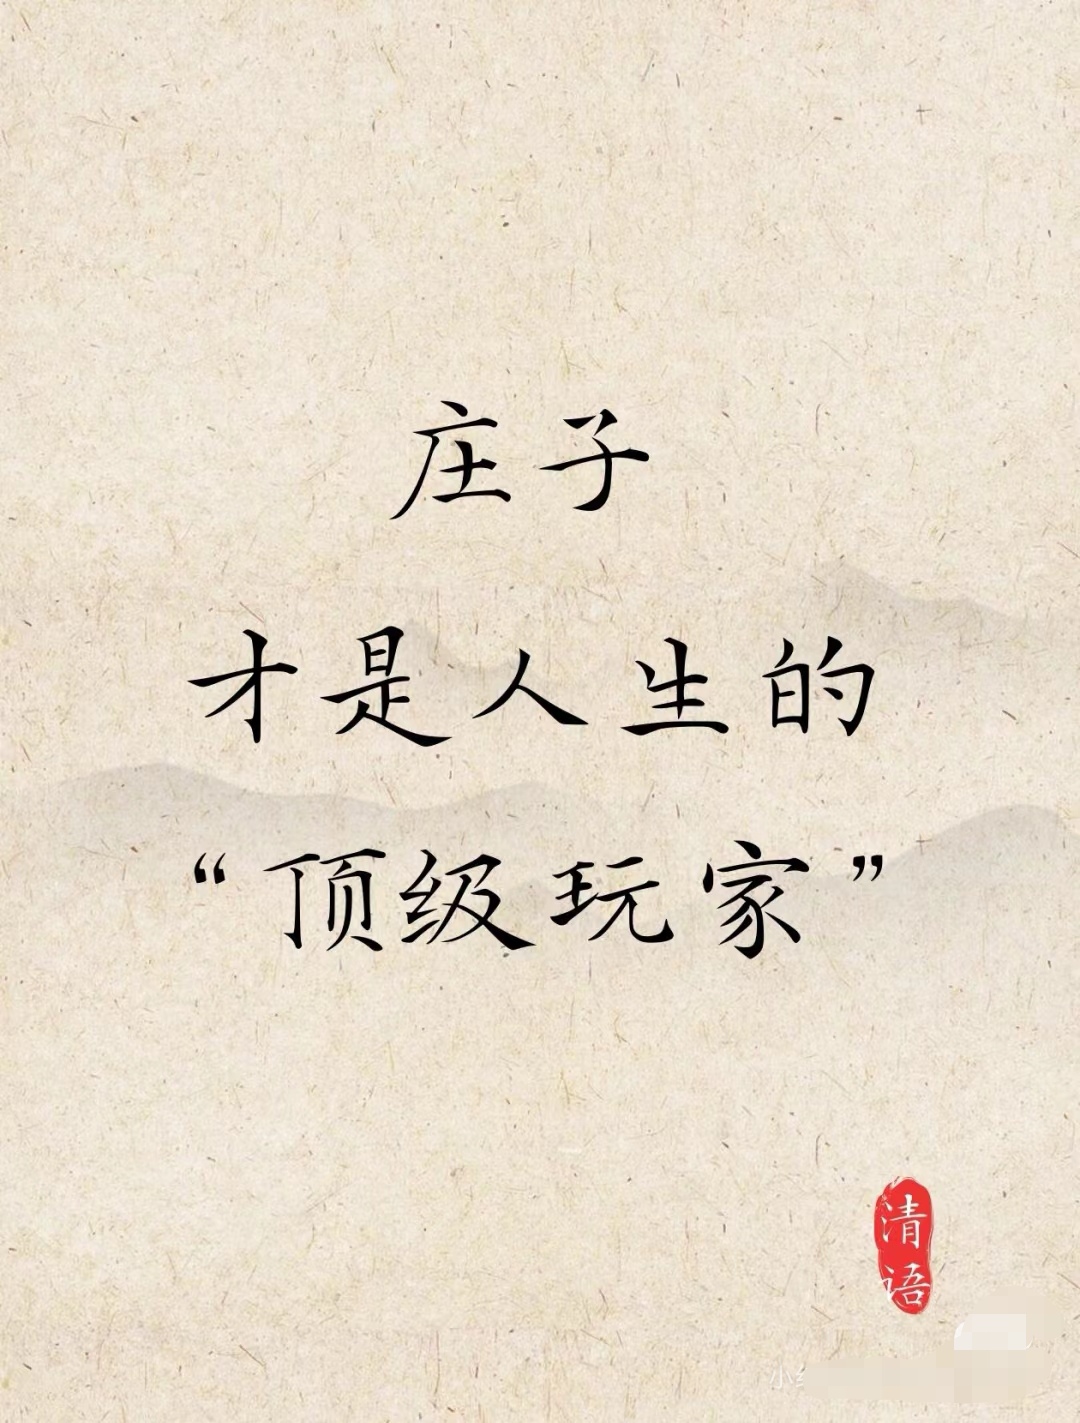 庄子
才是人生的
“顶级玩家”
清语